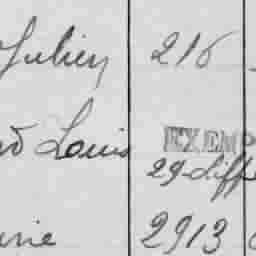 Julien 216
Louis EXEMP
29 Liffr
2913